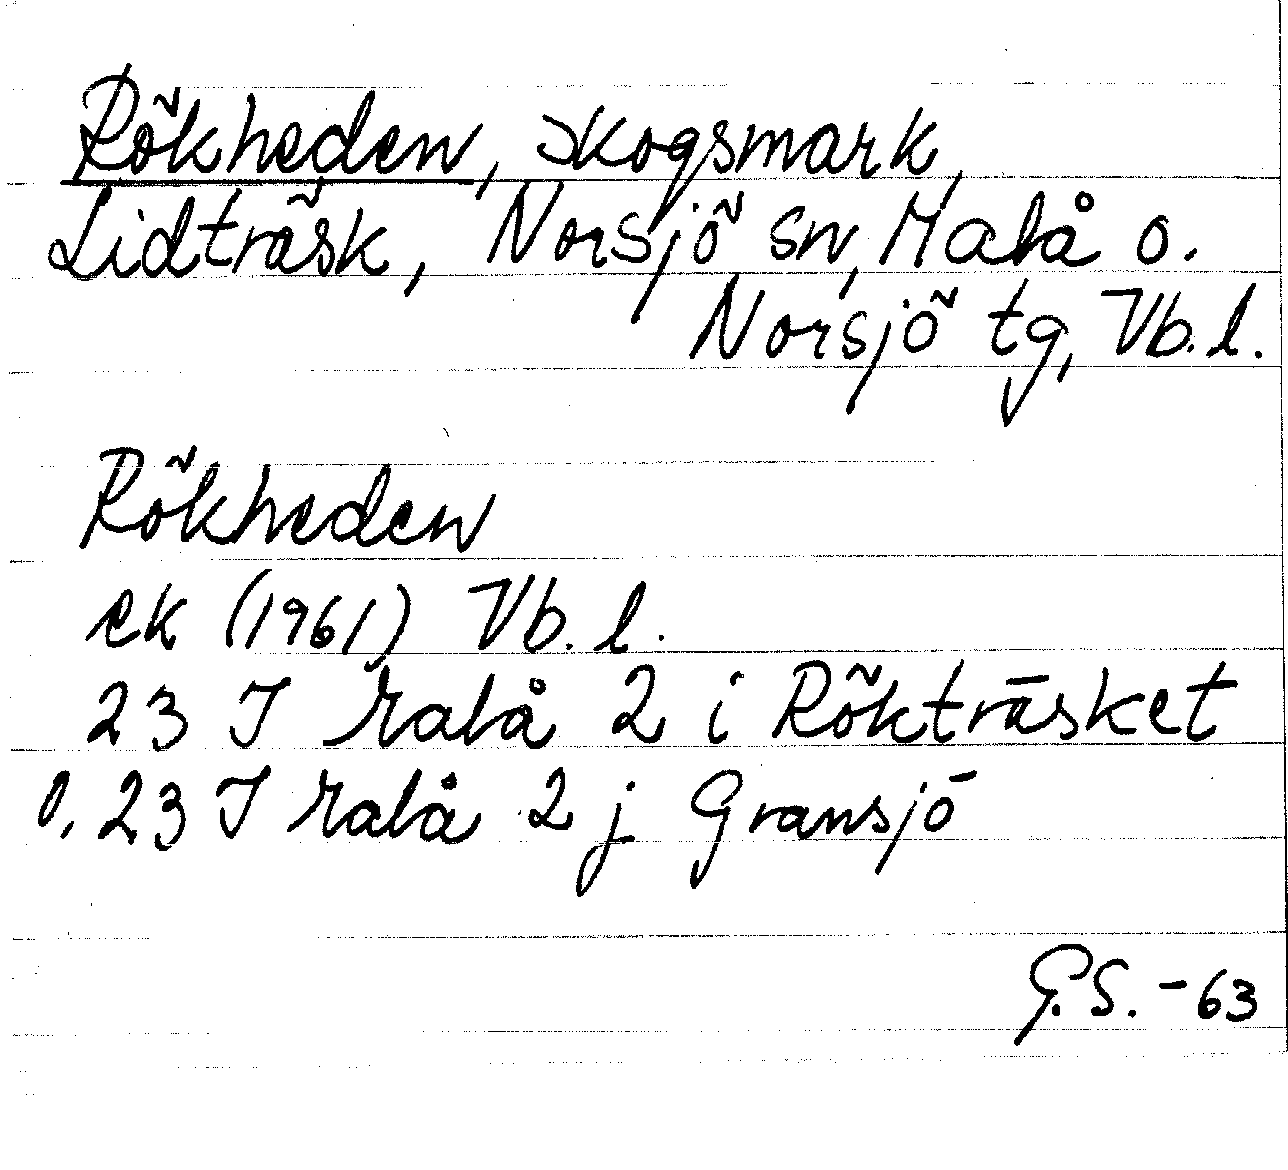 Rökheden, skogsmark,
Lidträsk, Norsjö sn, Malå o.
Norsjö tg, Vb. l.
Rökheden
ek (1961) Vb. l.
23 I Malå 2 i Rökträsket
o, 23 I Malå 2 j Gransjö
G.S. - 63